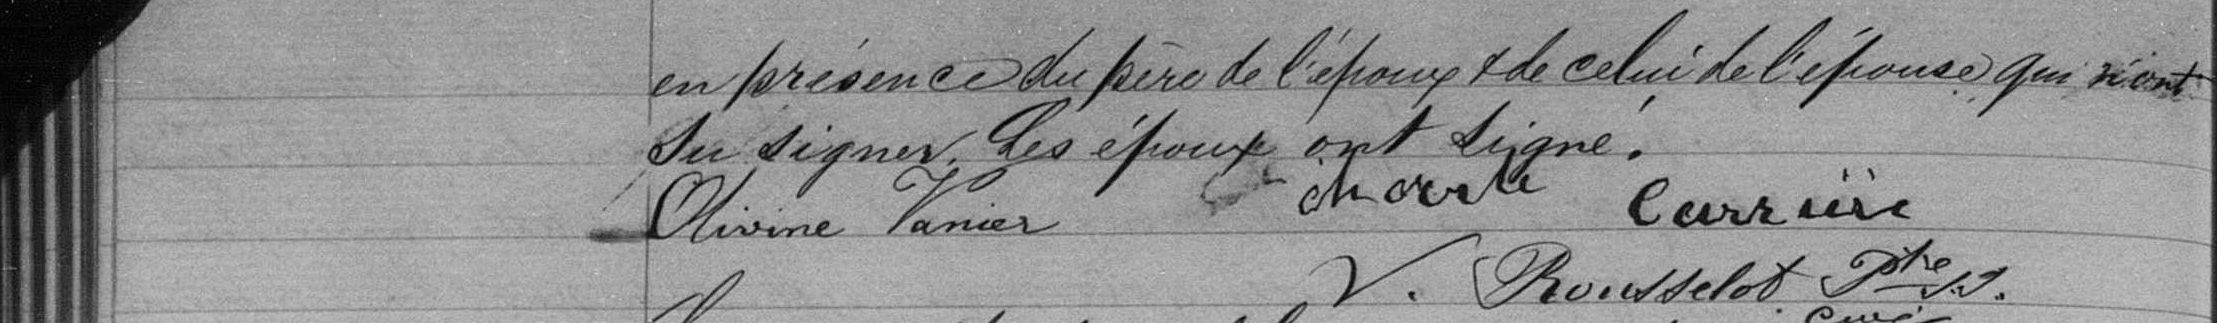 en présence du père de l'époux & de celui de l'épouse qui n'ont
su signer. Les époux ont signé.
Olivine Vanier Charle Carrière
V. Rousselot Ptre S.S.
Curé